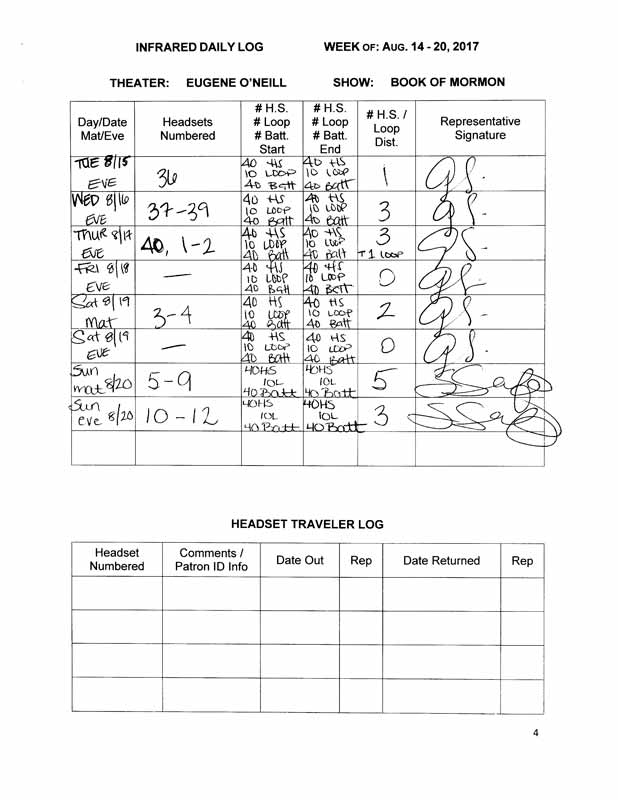 INFRARED DAILY LOG WEEK OF: AUG. 14 - 20, 2017
THEATER: EUGENE O'NEILL SHOW: BOOK OF MORMON
Day/Date Mat/Eve Headsets Numbered # H.S. # Loop # Batt. Start # H.S. # Loop # Batt. End # H.S. / Loop Dist. Representative Signature
TUE 8/15 EVE 36 40 HS 10 LOOP 40 Batt 40 HS 10 LOOP 40 Batt 1
WED 8/16 EVE 37-39 40 HS 10 LOOP 40 Batt 40 HS 10 LOOP 40 Batt 3
THUR 8/17 EVE 40, 1-2 40 HS 10 LOOP 40 Batt 40 HS 10 LOOP 40 Batt 3 +1 LOOP
FRI 8/18 EVE — 40 HS 10 LOOP 40 Batt 40 HS 10 LOOP 40 Batt 0
Sat 8/19 Mat 3-4 40 HS 10 LOOP 40 Batt 40 HS 10 LOOP 40 Batt 2
Sat 8/19 EVE — 40 HS 10 LOOP 40 Batt 40 HS 10 LOOP 40 Batt 0
Sun mat 8/20 5-9 40HS 10L 40 Batt 40HS 10L 40 Batt 5
Sun eve 8/20 10-12 40HS 10L 40 Batt 40HS 10L 40 Batt 3
HEADSET TRAVELER LOG
Headset Numbered Comments / Patron ID Info Date Out Rep Date Returned Rep
4